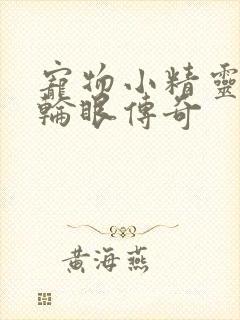 寵物小精靈
輪眼傳奇
黃海燕